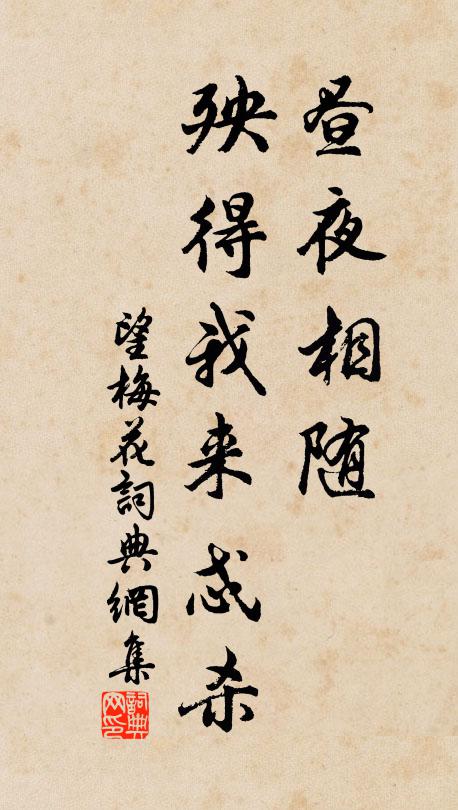 昼夜相随
殃得我来忒杀
望梅花詞典網集
詞典网印